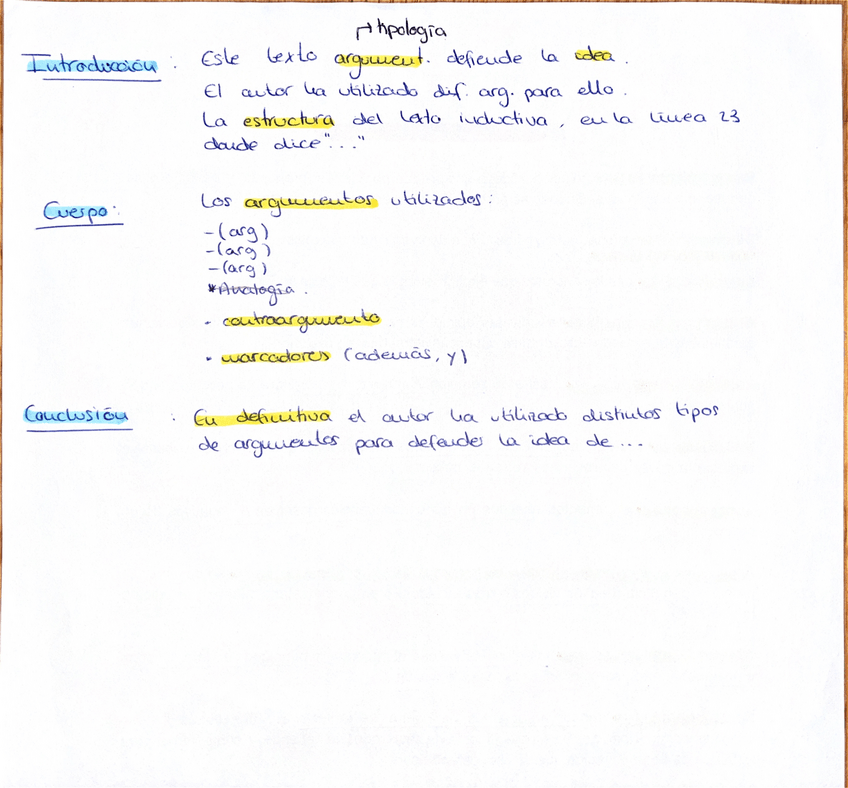 ↱ tipología
Introducción : Este texto argument. defiende la idea.
El autor ha utilizado dif. arg. para ello.
La estructura del texto inductiva, en la línea 23
donde dice "..."
Cuerpo: Los argumentos utilizados:
-(arg)
-(arg)
-(arg)
*Analogía.
· contraargumento
· marcadores (además, y)
Conclusión : En definitiva el autor ha utilizado distintos tipos
de argumentos para defender la idea de ...